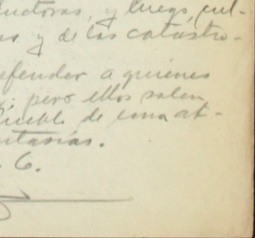 ductoras, y luego cul-
y de las catástro-
efender a quienes
pero ellos salen
pueblo de una at-
tasías.
6.